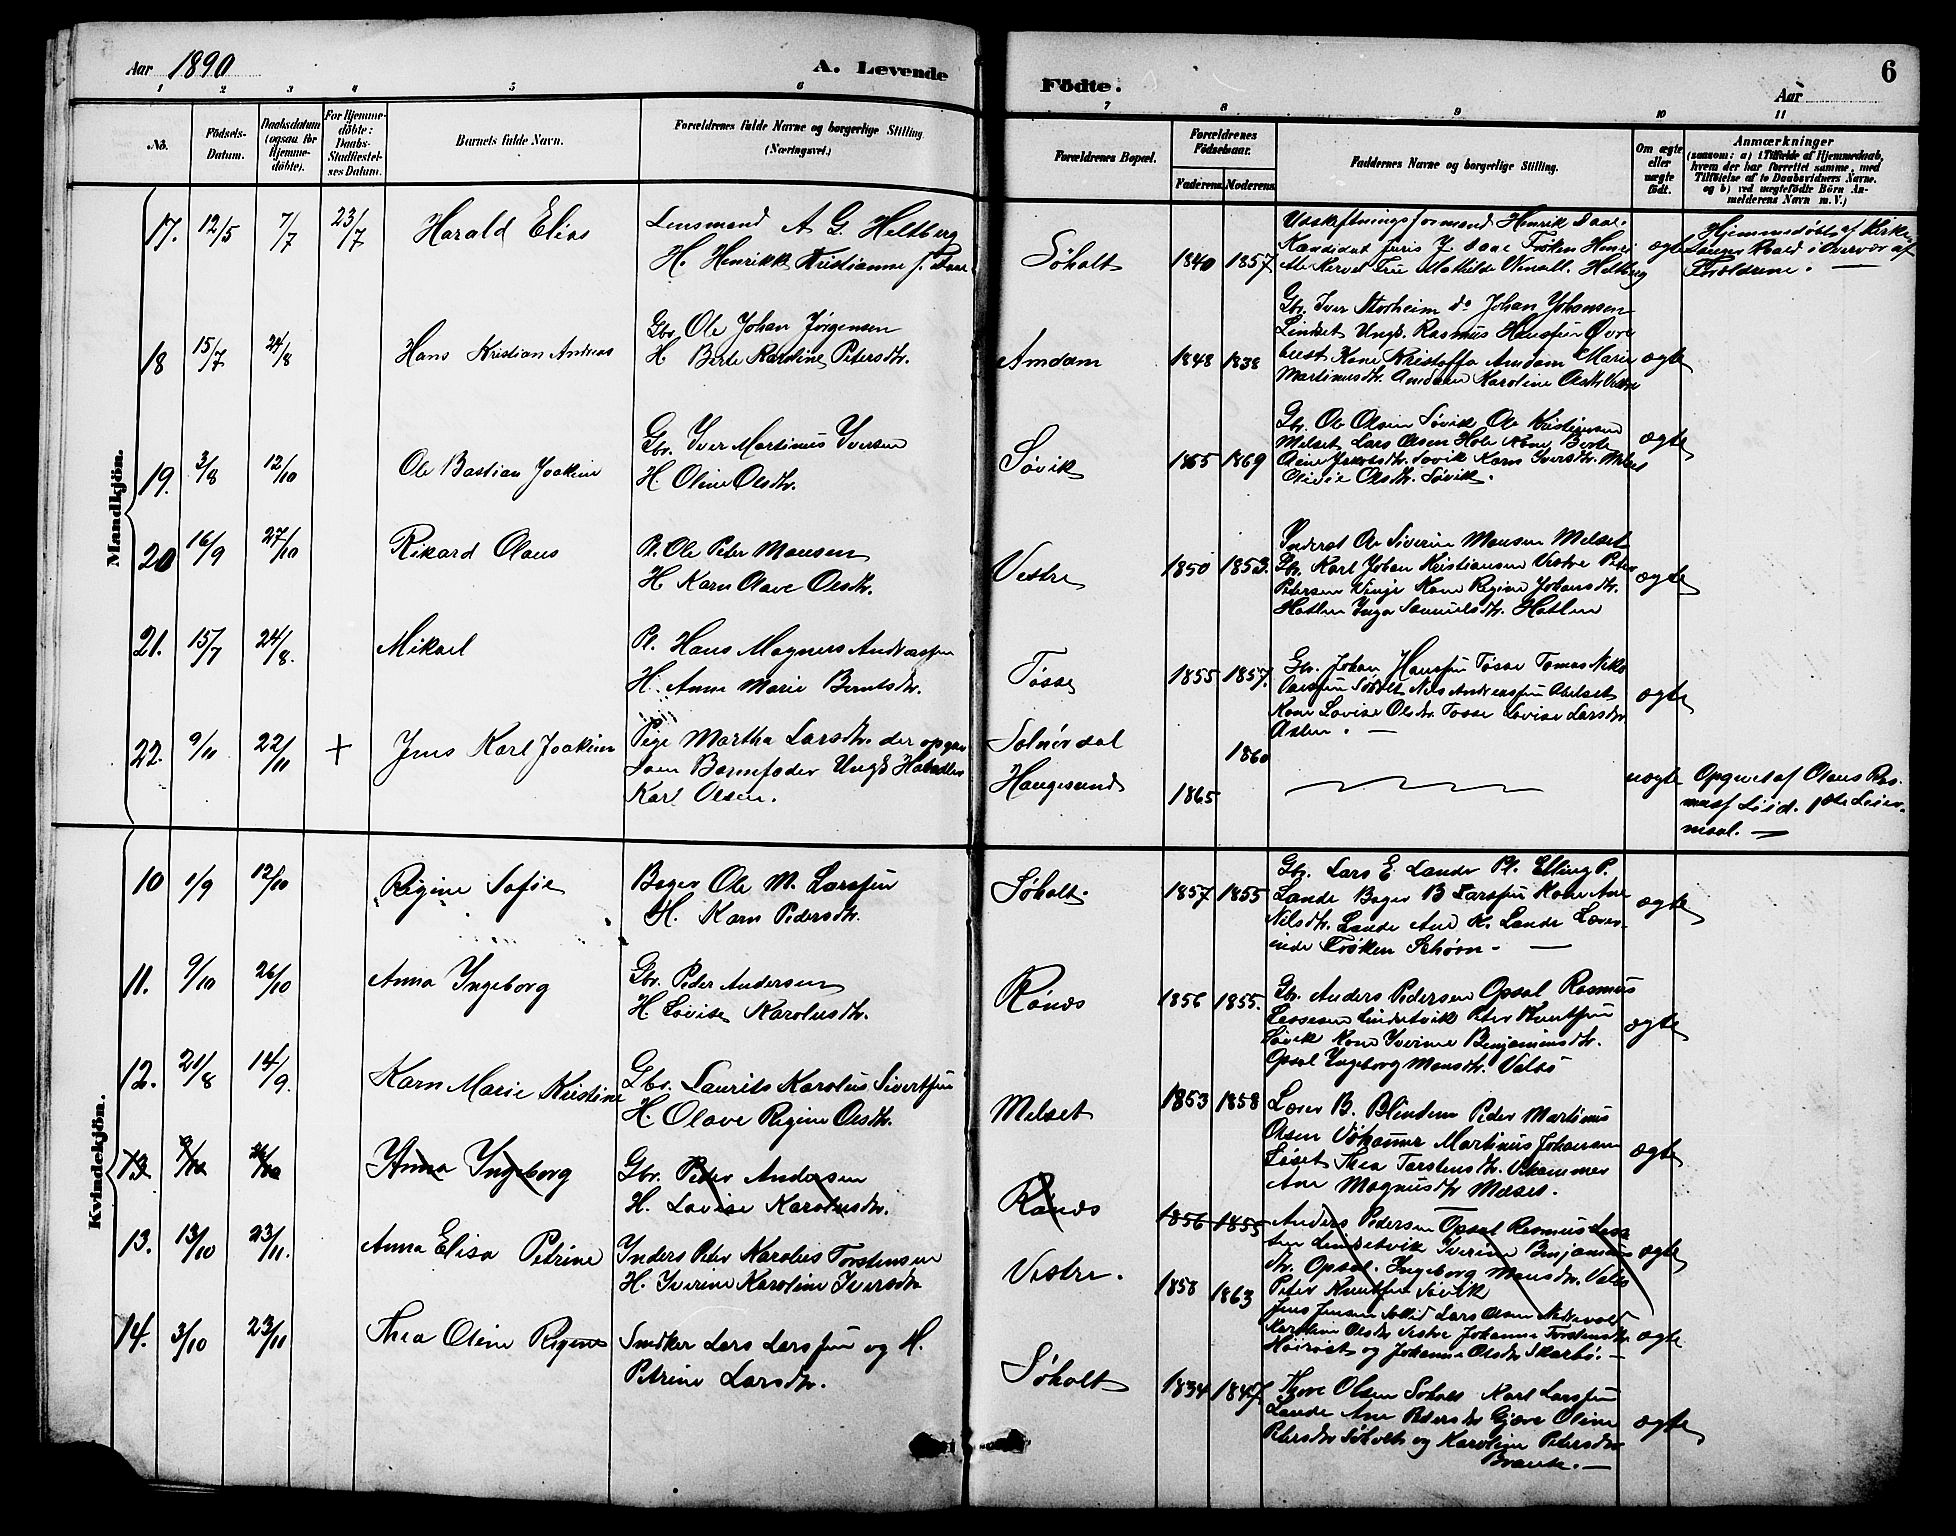 Aar 1890
A. Levende
Födte.
Aar
6
1 2 3 4 5 6 7 8 9 10 11
No.
Födsels-
Datum.
Daabsdatum
(ogsaa for
Hjemme-
döbte).
For Hjemme-
döbte:
Daabs-
Stadfæstel-
ses Datum.
Barnets fulde Navn.
Forældrenes fulde Navne og borgerlige Stilling
(Næringsvei.)
Forældrenes Bopæl.
Forældrenes
Födselsaar.
Faderens. Moderens.
Faddernes Navne og borgerlige Stilling.
Om ægte
eller
uægte
födt.
Anmærkninger
(saasom: a) i Tilfælde af Hjemmedaab,
hvem der har forrettet samme, med
Tilföielse af to Daabsvidners Navne.
og b) ved uægtefödte Börn An-
melderens Navn m. V.)
Mandkjön.
17. 12/5 7/7 23/7 Harald Elias
Lensmand A G Heltberg
H. Henrikke Kristianne f. Daae
Søholt 1840 1857
Udskiftningsformand Henrik Daae
Kandidat Juris J. Daae Frøken Henri
Heltberg
ægte
Hjemmedöbt af Kirke
sanger Roald i Overvær af
Forældrene.
18 15/7 24/8 Hans Kristian Andreas
Gbr. Ole Johan Jørgensen
H Berte Karoline Petersdtr.
Amdam 1848 1838
Gbr. Iver Storheim do Johan Johansen
Lindset Ungk. Rasmus Hansen Øvre
Kone Kristoffa Amdam Marie
Martinusdtr. Amdam Karoline Olsdtr Vestre
ægte
19. 3/8 12/10 Ole Bastian Joakim
Gbr. Iver Martinus Iversen
H. Oline Olsdtr.
Søvik 1865 1869
Gbr. Ole Olsen Søvik Ole Kristiansen
Melset Lars Olsen Hole Kone Berte
Oline Jakobsdtr. Søvik Karn Iversdtr. Melset
Olivie Olsdtr. Søvik.
ægte
20 16/9 27/10 Rikard Olaus
Pl. Ole Peter Monsen
H Karn Olave Olsdtr.
Vestre 1850 1853.
Inderst Ole Siverin Monsen Melset
Gbr. Karl Johan Kristiansen Vestre Peter
Petersen Vinje Kone Regine Johansdtr.
Hatlen Inga Samuelsdtr. Hatlen
ægte
21. 15/7 24/8. Mikael
Pl. Hans Magnus Andreassen
H. Anne Marie Berntsdtr.
Tøsse 1855 1857.
Gbr. Johan Hansen Tøsse Tomas Niko
laisen Søholt Nils Andreassen Abelset
Kone Lovise Olsdtr. Tøsse Lovise Larsdtr
ægte
22. 9/11 22/11 + Jens Karl Joakim
Pige Martha Larsdtr. der opgav
som Barnefader Ungk
Karl Olsen.
Solnørdal
Haugesund
1865 1860
uægte
Opgivet af Olaus Ras
1ste Leier-
maal.
Kvindekjön.
10 1/9 12/10 Regine Sofie
Bager Ole M. Larsen
H. Karn Pedersdtr.
Søholt. 1857 1855
Gbr. Lars E. Lande Pl. Elling P.
Lande Bager B Larsen Kone Ane
Nilsdtr. Lande Ane K. Lande Lærer-
inde Frøken Schørn.
ægte
11. 9/10 26/10 Anna Ingeborg
Gbr. Peder Andersen
H Lovise Karolusdtr.
Rønds 1856 1855.
Gbr. Anders Pedersen Opsal Rasmus
Lassesen Lindsetvik Peter Knutsen
Søvik Kone Iverine Benjaminsdtr.
Opsal Ingeborg Monsdtr. Valbø
ægte
12. 21/8 14/9. Karn Marie Kristine
Gbr. Laurits Karolus Sivertsen
H. Olave Regine Olsdtr.
Melset 1853 1858
Lærer B. Blindem Peder Martinus
Olsen Vehammer Martinus Johansen
Liset Thea Torstensdtr. Vehammer
Ane Magnusdtr Melset.
ægte
13 9/10 26/10 Anna Ingeborg
Gbr. Peder Andersen
H. Lovise Karolusdtr.
Rønds 1856 1855
Anders Pedersen Opsal Rasmus Lasse
sen Lindsetvik Iverine Benjamins
dtr. Opsal. Ingeborg Monsdtr. Valbø
Peter Knutsen Søvik
ægte
13. 13/10 23/11. Anna Elisa Petrine
Inders Peter Karolus Torstensen
H. Iverine Karoline Iversdtr
Vestre. 1858 1863
Jens Jensen Lars Olsen
Karoline Olsdtr Vestre Johanne Torstensdtr.
og Johanne Olsdtr Skarbø.
ægte
14. 3/10 23/11 Thea Oline Regine
Snedker Lars Larsen og H.
Petrine Larsdtr.
Søholt 1834 1847
Thore Olsen Søholt Karl Larsen
Lande Ane Pedersdtr Gjære Oline
Petersdtr Søholt og Karoline Petersdtr
ægte